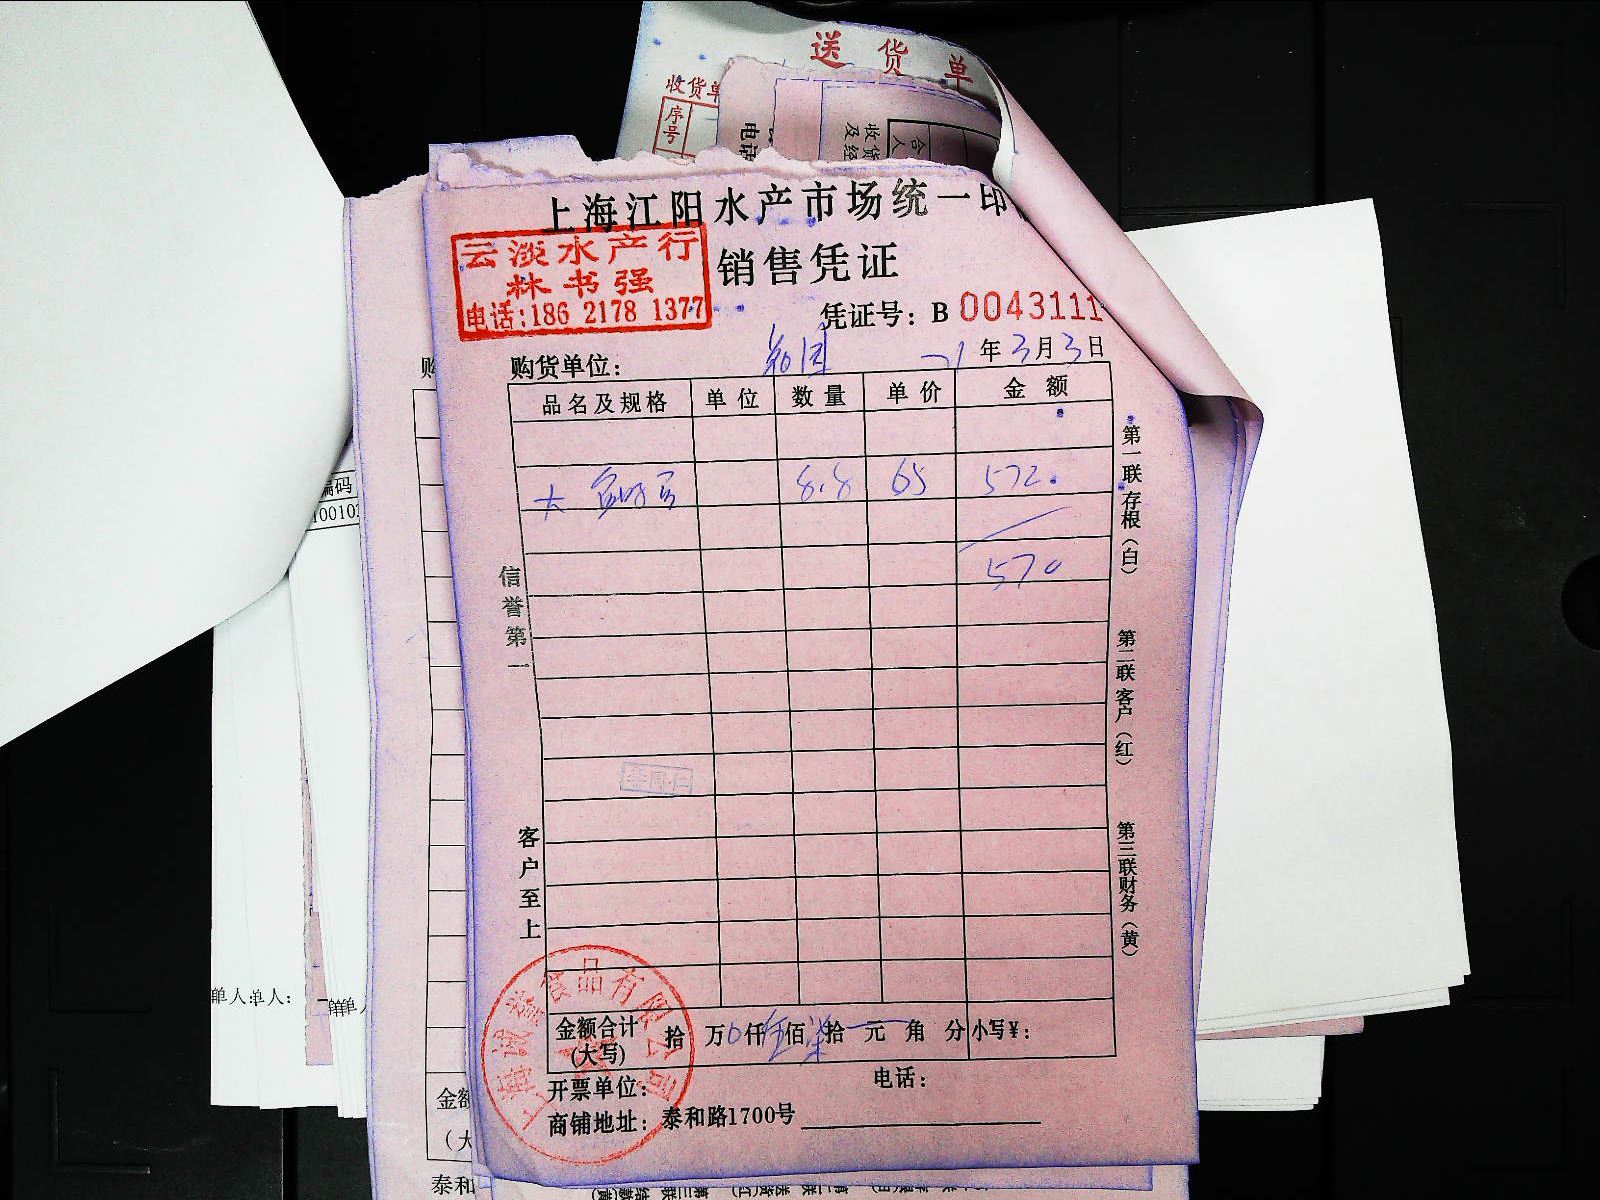 送货单
收货单
序号
电话
收货
及经
合
人
上海江阳水产市场统一印
云淡水产行
林书强
电话:186 2178 1377
销售凭证
凭证号: B 0043111
购货单位:
21 年 3 月 3 日
品名及规格 单位 数量 单价 金额
大 8.8 65 572.
570
信誉第一
客户至上
第一联 存根 (白)
第二联 客户 (红)
第三联 财务 (黄)
金额合计 拾 万 0 仟 伍 佰 柒 拾 元 角 分 小写¥:
(大写)
开票单位: 电话:
商铺地址: 泰和路1700号
上海诚鲞食品有限公司
购
编码
10010
单人:单人:
金额
(大
泰和